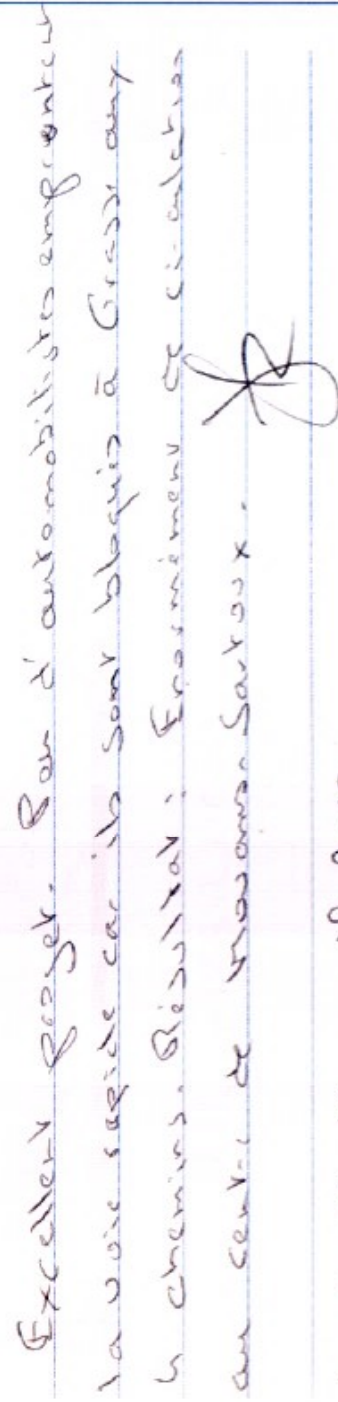 Excellent projet. Peu d'automobilistes empruntent
la voie rapide car ils sont bloqués à Grasse aux
4 chemins. Résultat : Enormément de circulation
au centre de Mouans-Sartoux.